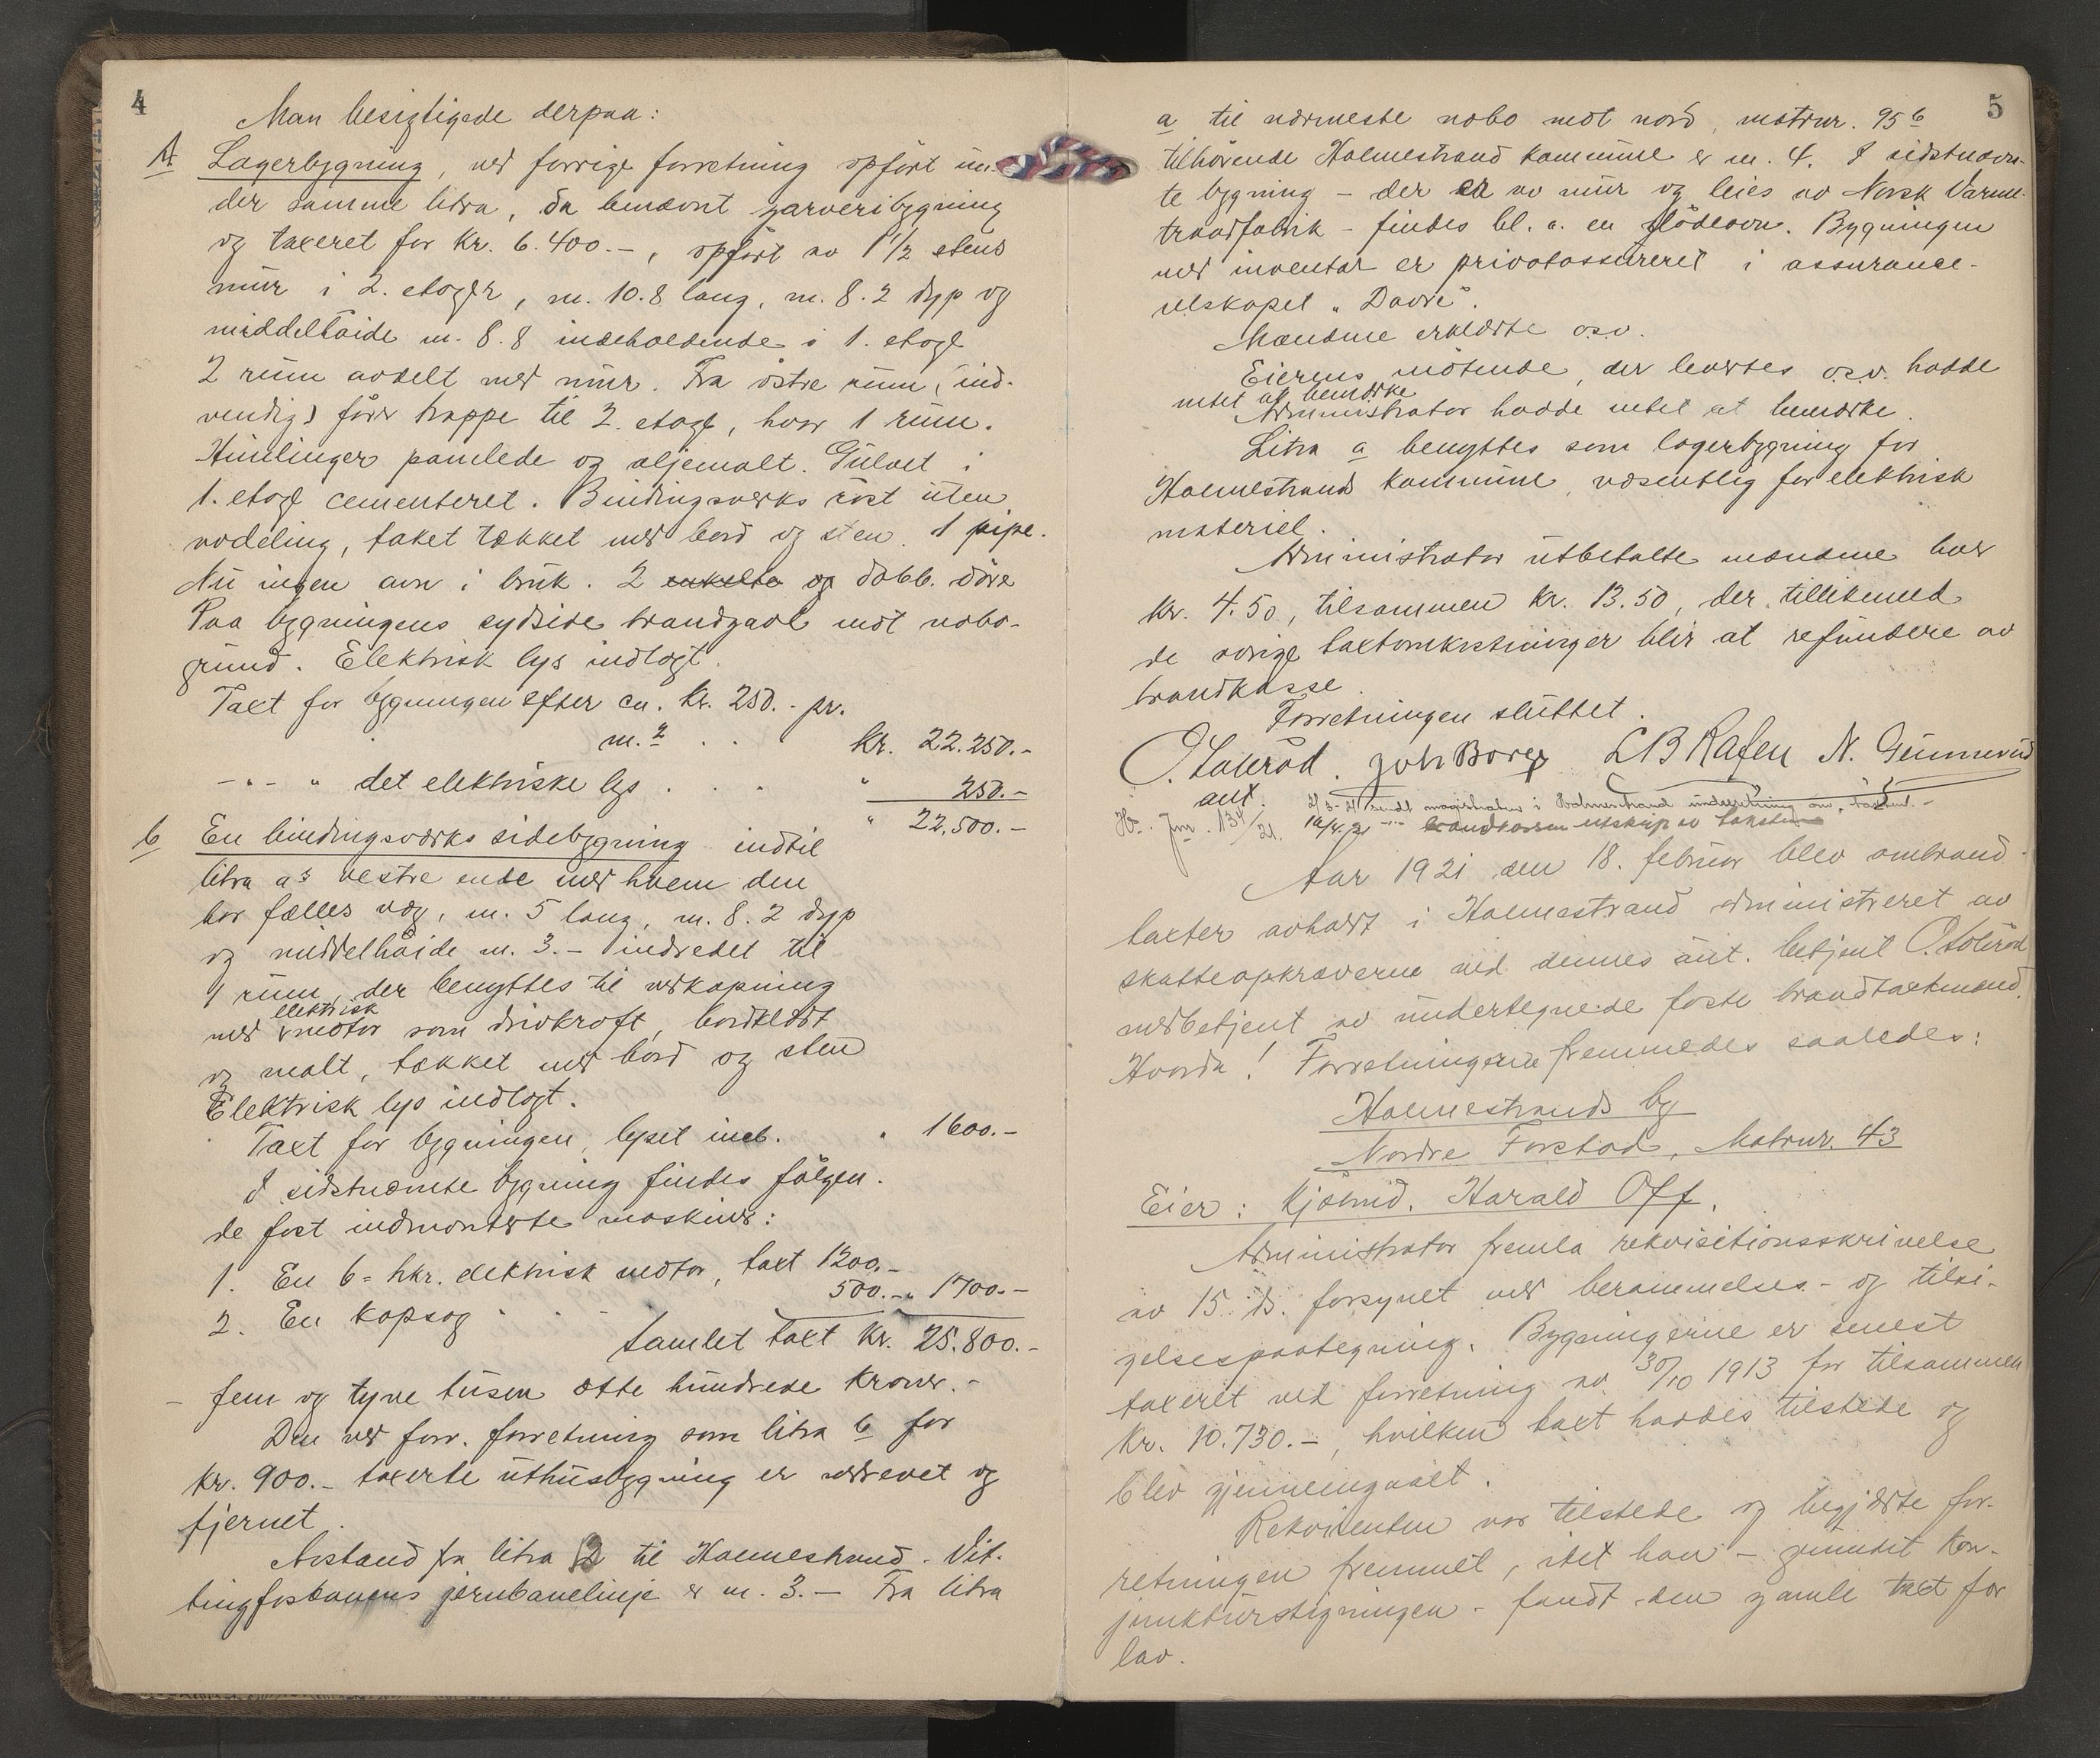 4
Man besigtigede derpaa:
A Lagerbygning, ved forrige forretning opført un-
der samme litra, da benævnt garveribygning
og taxeret for kr. 6.400.-, opført av 1 1/2 stens
mur i 2. etager, m. 10.8 lang, m. 8.2 dyp og
middelhøide m. 8.8 indeholdende i 1. etage
2 rum avdelt med mur. Fra østre rum (ind-
vendig) fører trappe til 2. etage, hvor 1 rum.
Himlinger panelede og oljemalt. Gulvet i
1. etage cementeret. Bindingsverks røst uten
avdeling, taket tækket med bord og sten. 1 pipe.
Nu ingen ovn i bruk. 2 enkelte og dobb. døre
Paa bygningens sydside brandgavl mot nabo-
grund. Elektrisk lys indlagt.
Taxt for bygningen efter ca. kr. 250.- pr.
m.2 . . kr. 22.250.-
-"- " det elektriske lys . . . " 250.-
" 22,500.-
b En bindingsværks sidebygning indtil
litra a's vestre ende med hvem den
har fælles væg, m. 5 lang, m. 8.2 dyp
og middelhøide m. 3.- indredet til
1 rum, der benyttes til vedkapning
elektrisk
med motor som drivkraft, bordklædt
og malt, tækket med bord og sten
Elektrisk lys indlagt.
Taxt for bygningen, lyset incl. " 1600.-
I sidstnævnte bygning findes følgen-
de fast indmonterte maskiner:
1. En 6= hkr. elektrisk motor, taxt 1200.-
2. En kapsag . . . 500.- " 1700.-
Samlet taxt kr. 25.800.-
- fem og tyve tusen otte hundrede kroner.-
Den ved forr. forretning som litra b for
kr. 900.- taxerte uthusbygning er nedrevet og
fjernet.
Avstand fra litra til Holmestrand - Vit-
tingfosbanens jernbanelinje er m. 3.- Fra litra
5
a til nærmeste nabo mot nord, matrnr. 95 b
tilhørende Holmestrand kommune er m. 4. I sidstnævn-
te bygning - der er av mur og leies av Norsk Varme-
traadfabrik - findes bl. a. en glødeovn. Bygningen
med inventar er privatassureret i assurance-
selskapet "Dovre".
Mændene erklærte o.s.v.
Eierens møtende, der levertes o.s.v. hadde
intet at bemerke
Administrator hadde intet at bemærke.
Litra a benyttes som lagerbygning for
Holmestrand kommune, væsentlig for elektrisk
materiel.
Administrator utbetalte mændene hver
kr. 4.50, tilsammen kr. 13.50, der tillikemed
de øvrige taxtomkostninger blir at refundere av
brandkasse.
Forretningen sluttet.
O. Solerød. Joh Borge L B Rafen N. Gunnerud
aut.
Jnr. 134/21. 2/3-21 sendt magistraten i Holmestrand underretning om taxten.-
16/4.21 -"- brandkassen utskrip av taksten
Aar 1921 den 18. februar blev ombrand-
taxter avholdt i Holmestrand administreret av
skatteopkræveren ved dennes aut. betjent O. Solerød
medbetjent av undertegnede faste brandtaxtmænd.
Hvorda! Forretningerne fremmedes saaledes:
Holmestrands by
Nordre Forstad, Matrnr. 43
Eier: Kjøbmd. Harald Off.
Administrator fremla rekvisitionsskrivelse
av 15. ds. forsynet med berammelses- og tilsi-
gelsespaategning. Bygningerne er senest
taxeret ved forretning av 30/10 1913 for tilsammen
kr. 10.730.-, hvilken taxt haddes tilstede og
blev gjennemgaaet.
Rekvirenten var tilstede og begjærte for-
retningen fremmet, idet han - grundet kon-
junkturstigningen - fandt den gamle taxt for
lav.